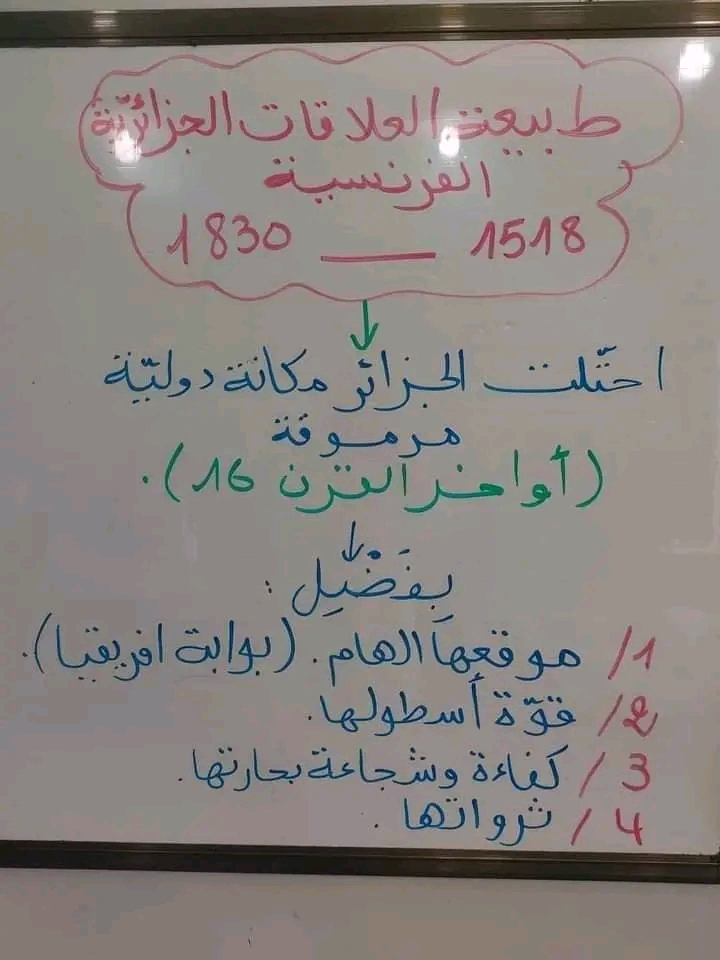 طبيعة العلاقات الجزائريّة
الفرنسية
1518 — 1830
احتّلت الجزائر مكانة دوليّة
مرموقة
(أواخر القرن 16).
بِفَضْلِ :
1/ موقعها الهام. (بوابة افريقيا).
2/ قوّة أسطولها.
3/ كفاءة وشجاعة بحارتها.
4/ ثرواتها.